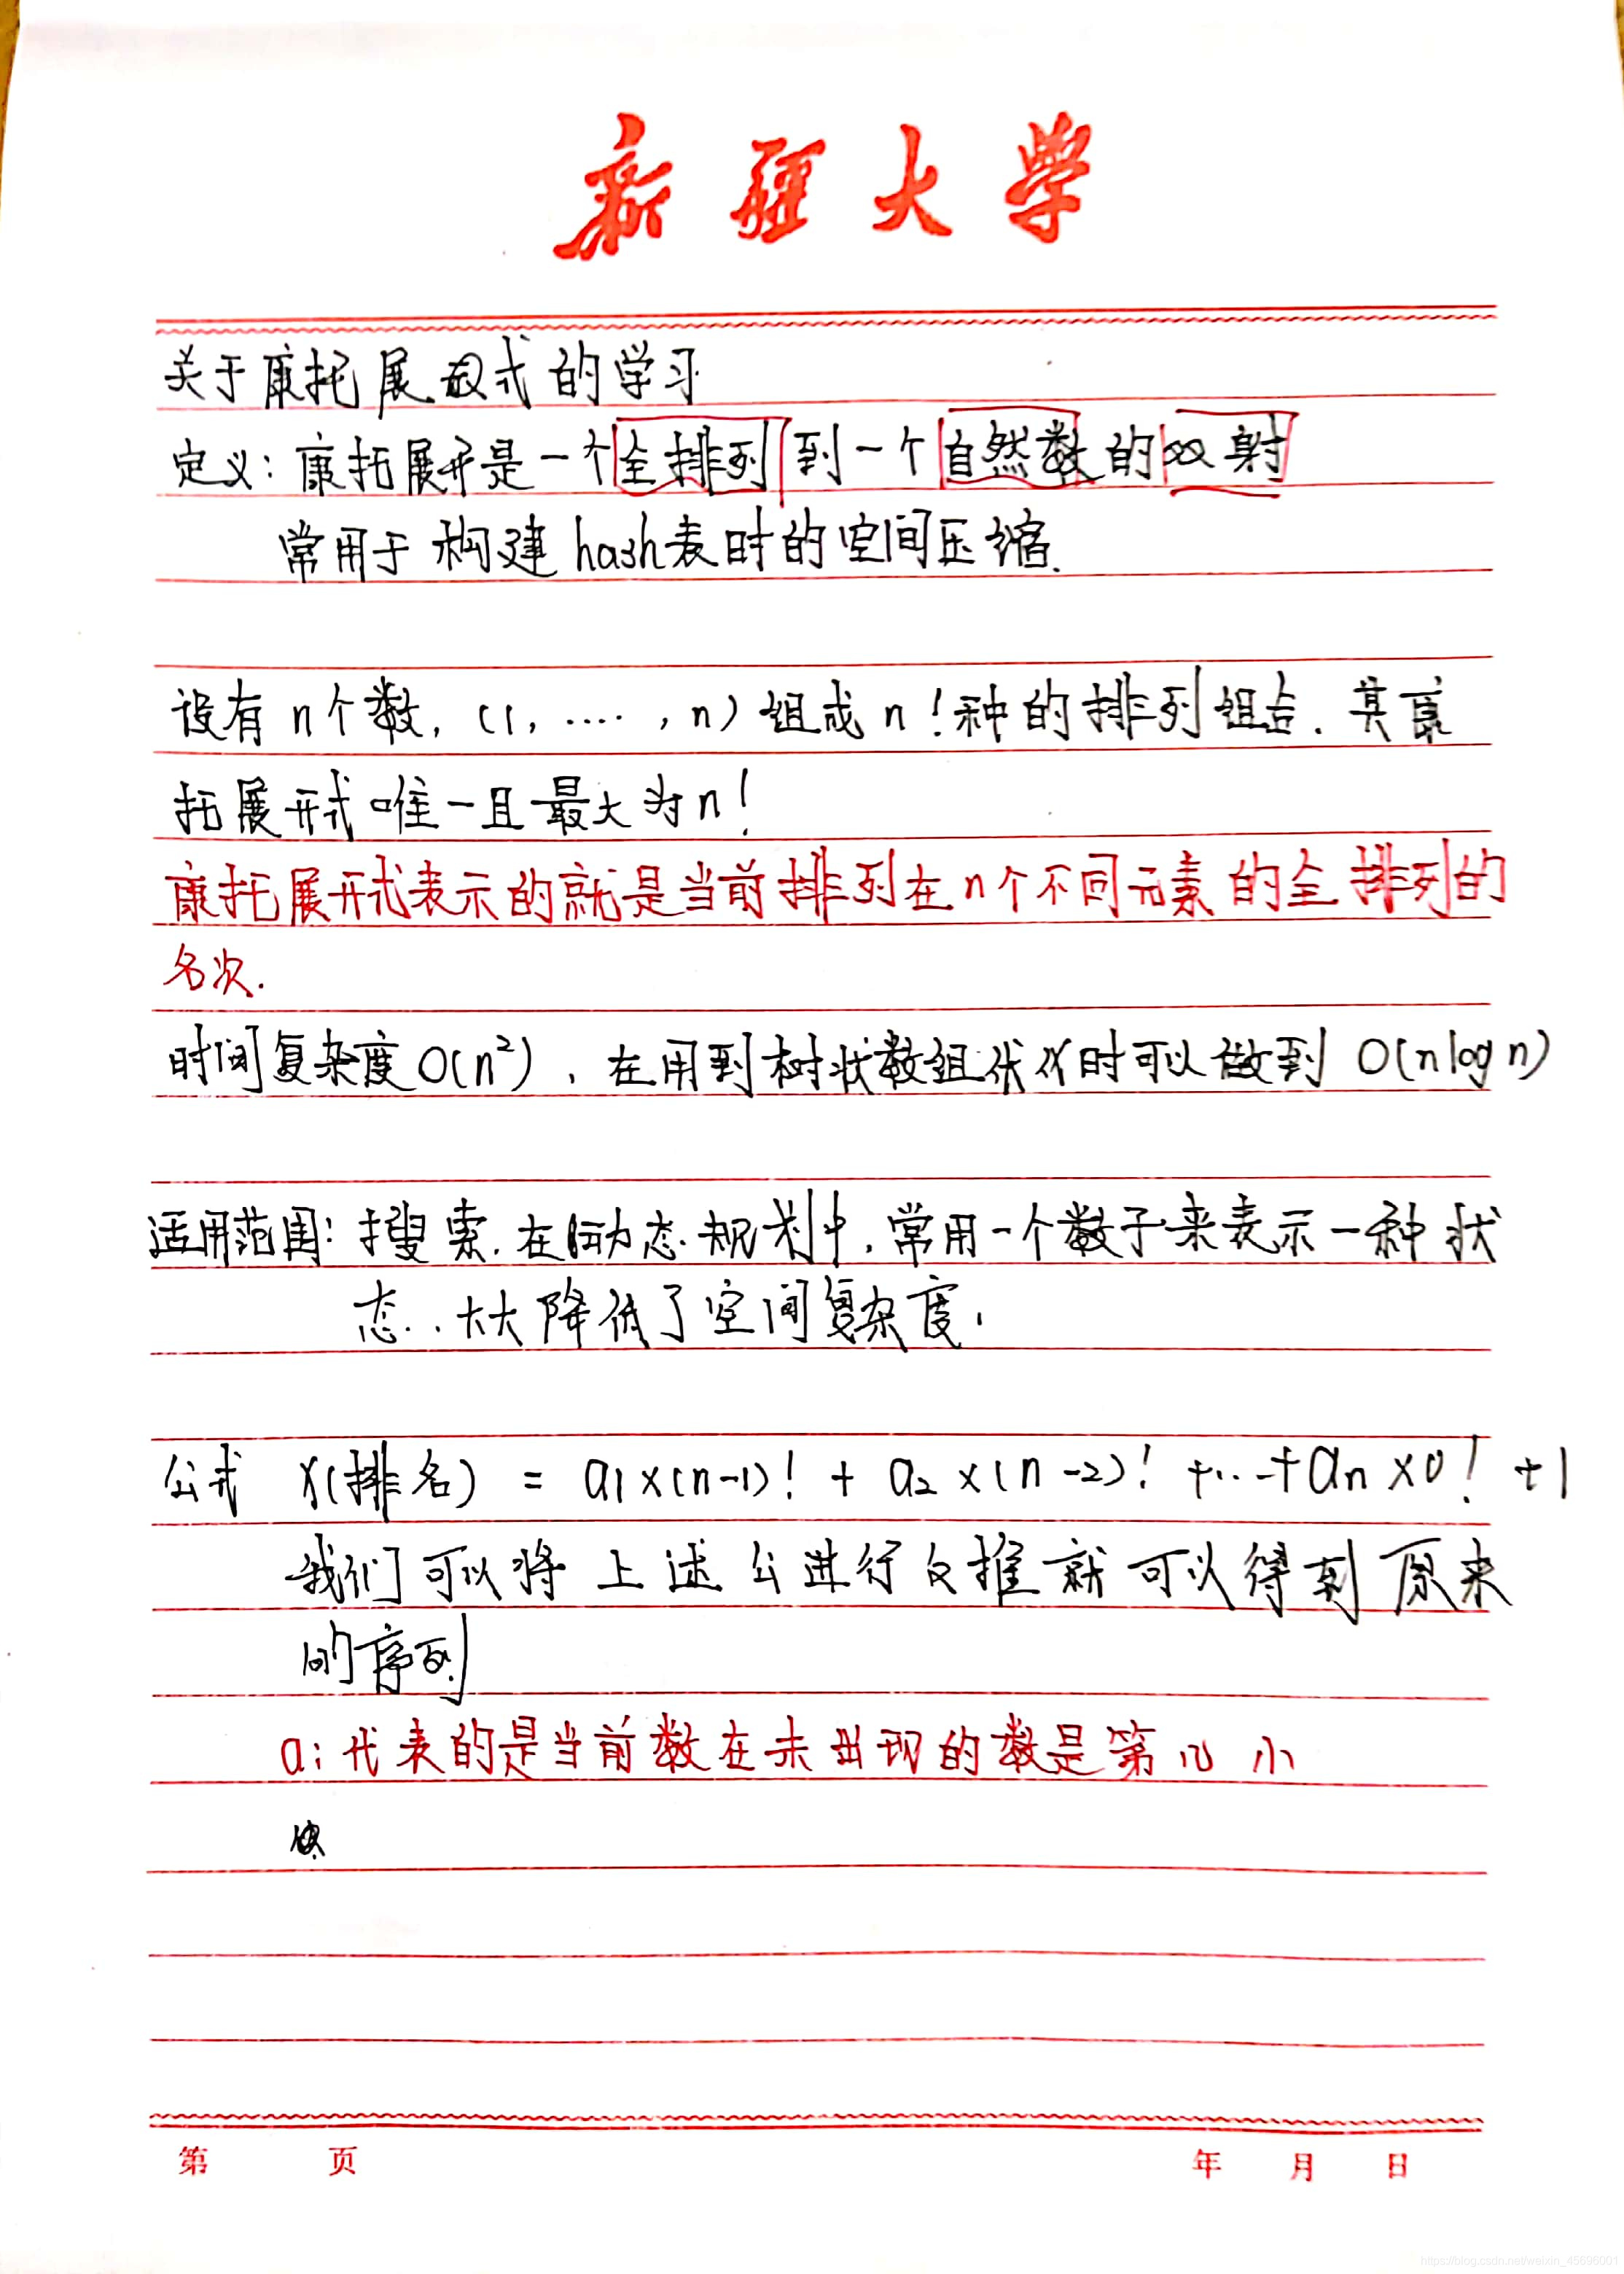 新疆大学
关于康托展开式的学习
定义：康托展开是一个全排列到一个自然数的双射
常用于构建hash表时的空间压缩.
设有n个数，(1，....，n)组成n！种的排列组合．其康
托展开式唯一且最大为n！
康托展开式表示的就是当前排列在n个不同元素的全排列的
名次.
时间复杂度O(n²)，在用到树状数组优化时可以做到 O(nlogn)
适用范围：搜索.在动态规划中，常用一个数子来表示一种状
态..大大降低了空间复杂度.
公式 X(排名) = a₁×(n-1)! + a₂×(n-2)! +...+aₙ×0! +1
我们可以将上述公进行反推就可以得到原来
的序列
aᵢ代表的是当前数在未出现的数是第几小
第 页 年 月 日
https://blog.csdn.net/weixin_45696001